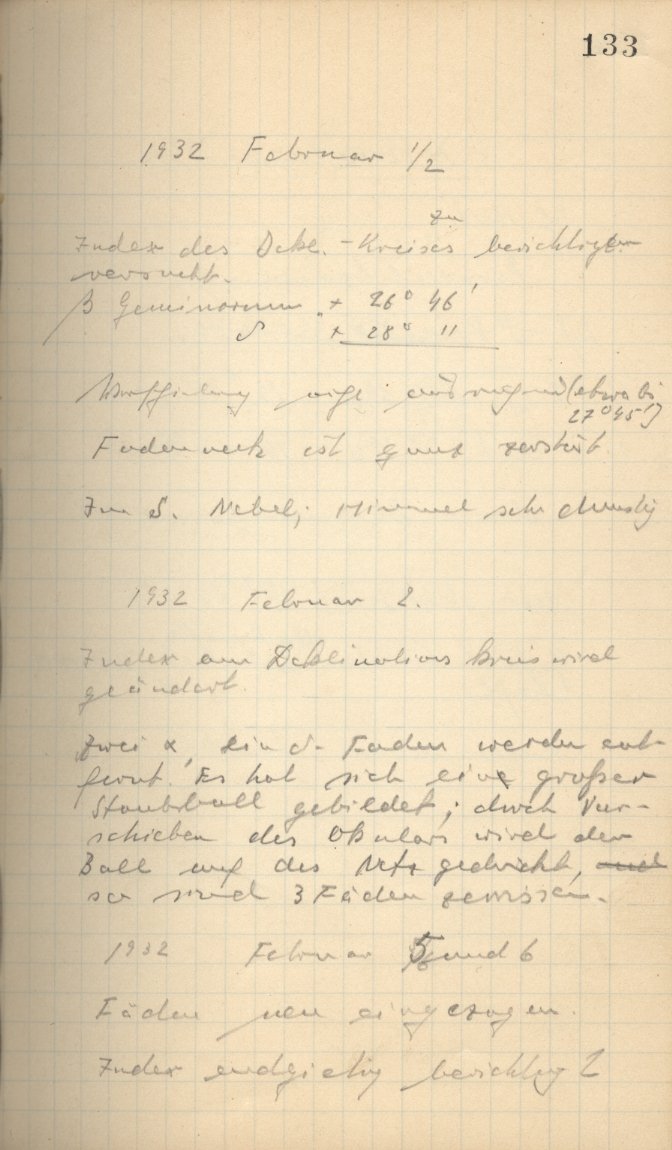 133
1932 Februar 1/2
zu
Index des Dekl.-Kreises berichtigen
versucht.
β Geminorum + 26° 46'
δ + 28° 11
(etwa bis
27° 45')
Fadennetz ist ganz zerstört
Im S. Nebel; Himmel sehr dunstig
1932 Februar 2.
Index am Deklinations kreis wird
geändert.
Zwei α, ein δ- Faden werden ent-
fernt. Es hat sich ein großer
Staubball gebildet; durch Ver-
schieben des Okulars wird der
Ball auf das Netz gedrückt, und
so sind 3 Fäden zerrissen.
1932 Februar 5 und 6
Fäden neu eingezogen.
Index endgiltig berichtigt